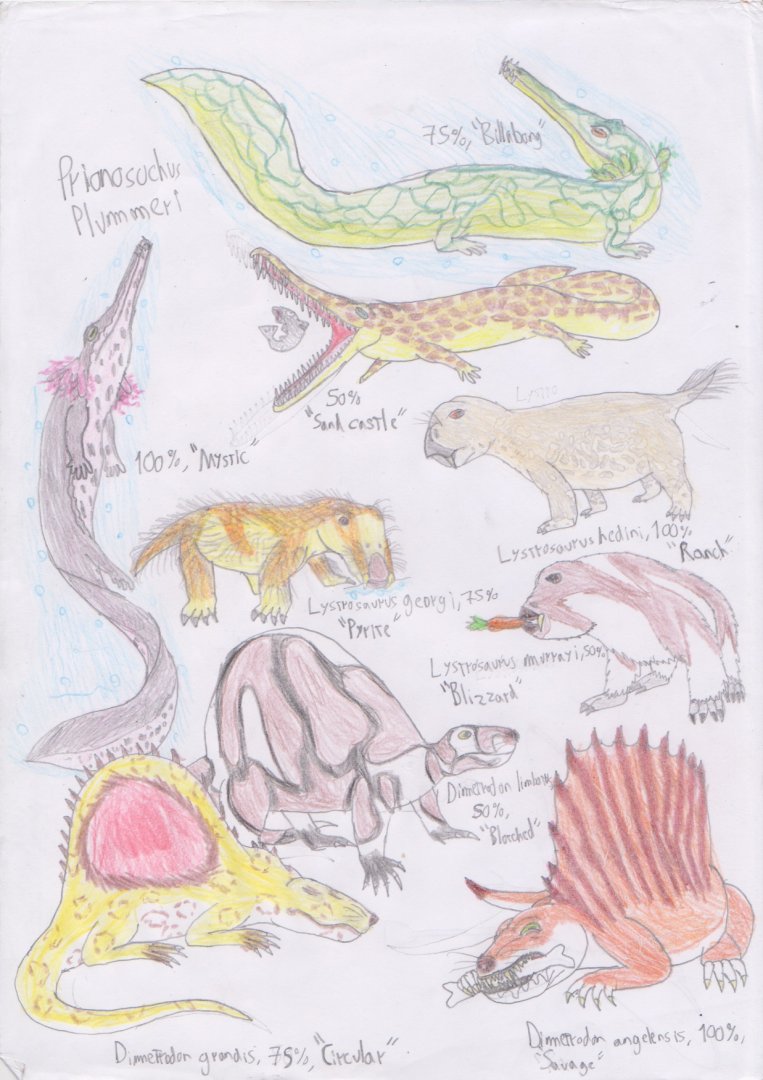 75%, "Billabong"
Prionosuchus
Plummeri
50%
"Sand castle"
Lystro
100%, "Mystic"
Lystrosaurus hedini, 100%
"Ranch"
Lystrosaurus georgi, 75%
"Pyrite"
Lystrosaurus murrayi, 50%
"Blizzard"
Dimetrodon limbatus,
50%,
"Blotched"
Dimetrodon grandis, 75%, "Circular"
Dimetrodon angelensis, 100%,
"Savage"